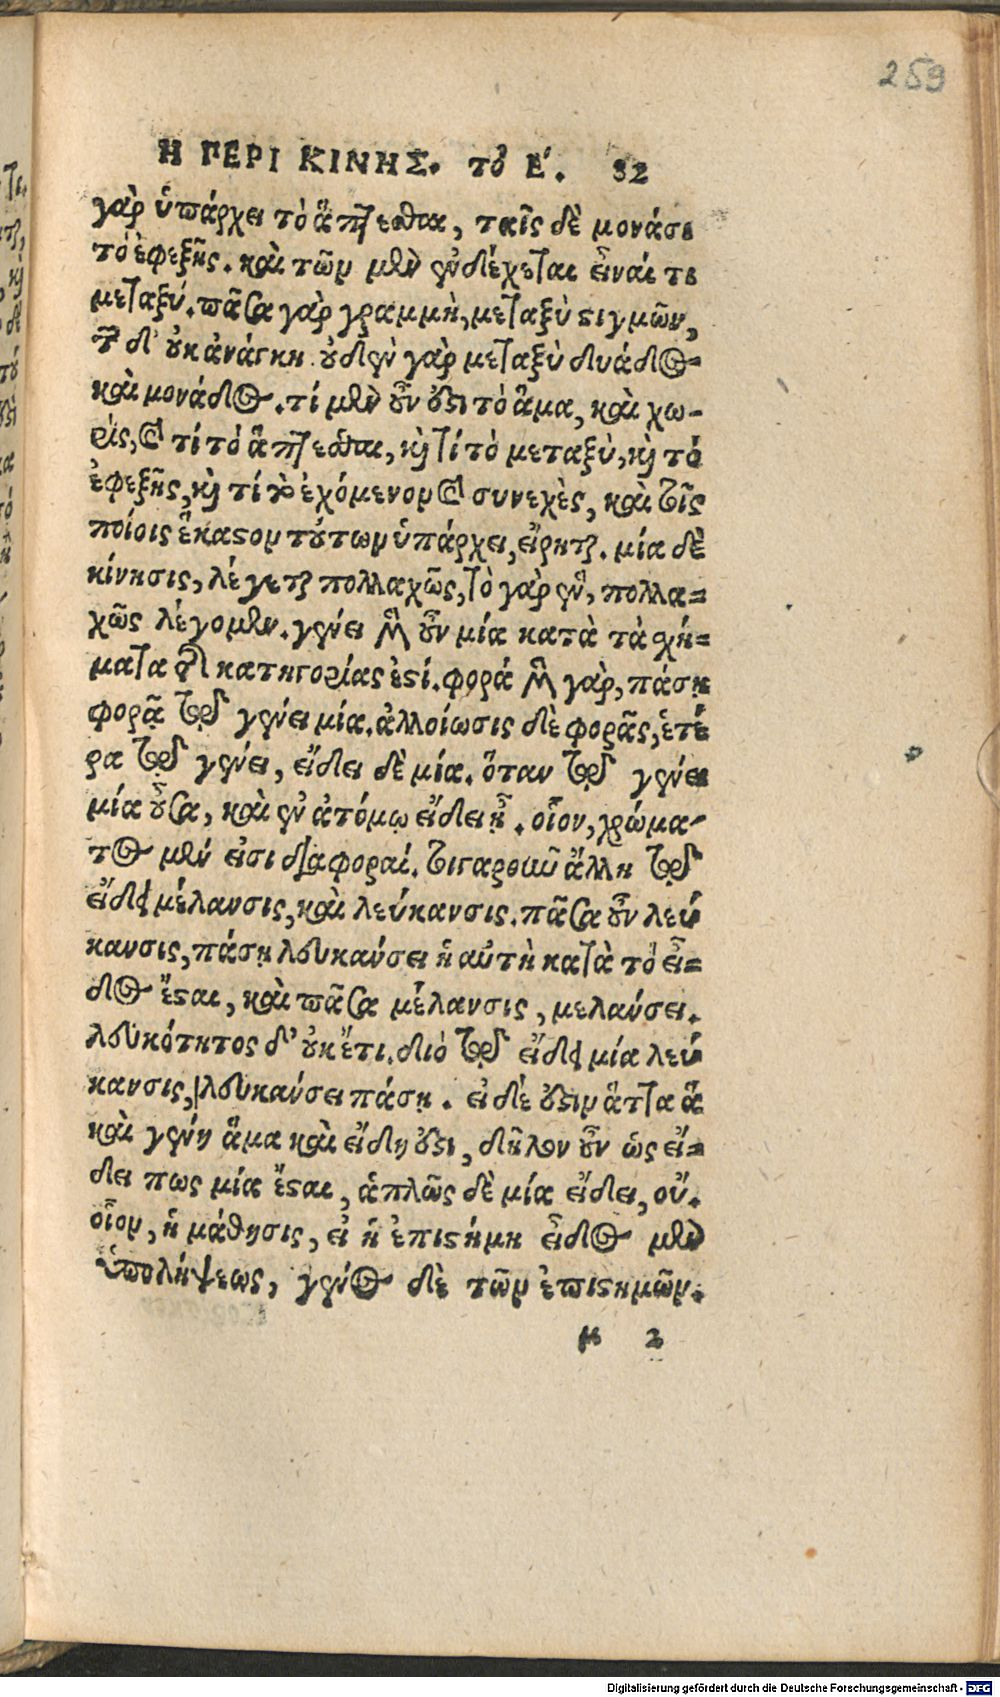 259
Η ΠΕΡΙ ΚΙΝΗΣ. τὸ Ε΄. 92
γὰρ ὑπάρχει τὸ ἅπτεσθαι, ταῖς δὲ μονάσι
τὸ ἐφεξῆς. καὶ τῶν μὲν ἐνδέχεται εἶναί τι
μεταξύ. πᾶσα γὰρ γραμμὴ, μεταξὺ στιγμῶν,
τῶν δ' οὐκ ἀνάγκη. οὐδὲν γὰρ μεταξὺ δυάδος
καὶ μονάδος. τί μὲν οὖν ἐστι τὸ ἅμα, καὶ χω-
ρίς, καὶ τί τὸ ἅπτεσθαι, καὶ τί τὸ μεταξὺ, καὶ τὸ
ἐφεξῆς, καὶ τί τὸ ἐχόμενον καὶ συνεχὲς, καὶ τοῖς
ποίοις ἕκαστον τούτων ὑπάρχει, εἴρηται. μία δὲ
κίνησις, λέγεται πολλαχῶς, τὸ γὰρ ἓν, πολλα=
χῶς λέγομεν. γένει μὲν οὖν μία κατὰ τὰ σχή=
ματα τῆς κατηγορίας ἐστί. φορά μὲν γὰρ, πάσῃ
φορᾷ τῷ γένει μία. ἀλλοίωσις δὲ φορᾶς, ἑτέ
ρα τῷ γένει, εἴδει δὲ μία. ὅταν τῷ γένει
μία οὖσα, καὶ ἐν ἀτόμῳ εἴδει ᾖ. οἷον, χρώμα-
τος μέν εἰσι διαφοραί. τοιγαροῦν ἄλλη τῷ
εἴδει μέλανσις, καὶ λεύκανσις. πᾶσα οὖν λεύ
κανσις, πάσῃ λευκάνσει ἡ αὐτὴ κατὰ τὸ εἶ=
δος ἔσται, καὶ πᾶσα μέλανσις, μελάνσει.
λευκότητος δ' οὐκ ἔτι. διὸ τῷ εἴδει μία λεύ
κανσις, λευκάνσει πάσῃ. εἰ δέ ἐστιν ἅττα ἃ
καὶ γένη ἅμα καὶ εἴδη ἐστι, δῆλον οὖν ὡς εἴ=
δει πως μία ἔσται, ἁπλῶς δὲ μία εἴδει, οὔ.
οἷον, ἡ μάθησις, εἰ ἡ ἐπιστήμη εἶδος μὲν
ὑπολήψεως, γένος δὲ τῶν ἐπιστημῶν.
μ 2
Digitalisierung gefördert durch die Deutsche Forschungsgemeinschaft - DFG